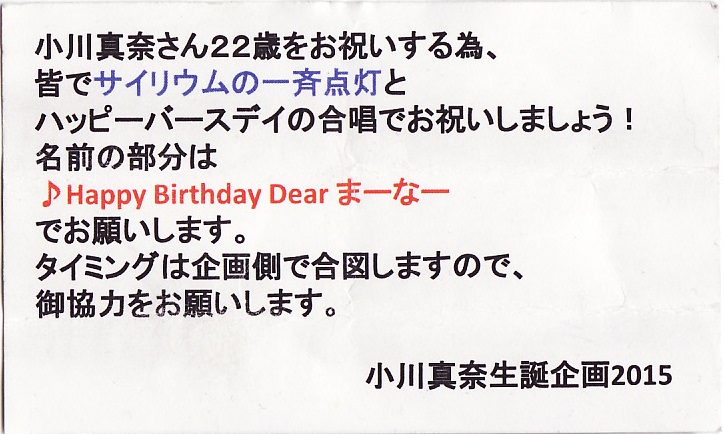 小川真奈さん２２歳をお祝いする為、
皆でサイリウムの一斉点灯と
ハッピーバースデイの合唱でお祝いしましょう！
名前の部分は
♪Happy Birthday Dear まーなー
でお願いします。
タイミングは企画側で合図しますので、
御協力をお願いします。
小川真奈生誕企画2015